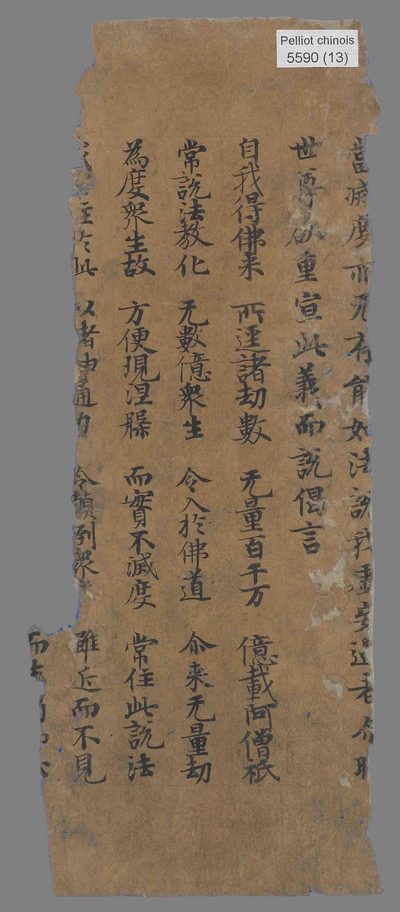 Pelliot chinois
5590 (13)
當滅度亦无有能如法說我
世尊欲重宣此義而說偈言
自我得佛來 所逕諸劫數 无量百千万 億載阿僧祇
常說法教化 无數億衆生 令入於佛道 尒來无量劫
為度衆生故 方便現涅槃 而實不滅度 常住此說法
住於此 以諸神通力 令顛倒衆 雖近而不見